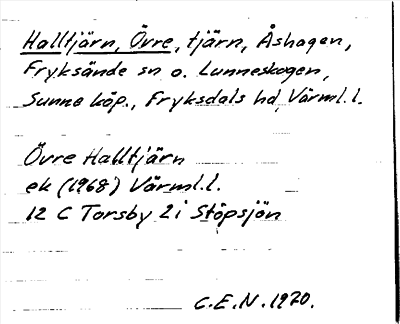 Halltjärn, Övre, tjärn, Åshagen,
Fryksände sn o. Lunneskogen,
Sunne köp., Fryksdals hd, Värml.l.
Övre Halltjärn
ek (1968) Värml.l.
12 C Torsby 2 i Stöpsjön
C.E.N. 1970.